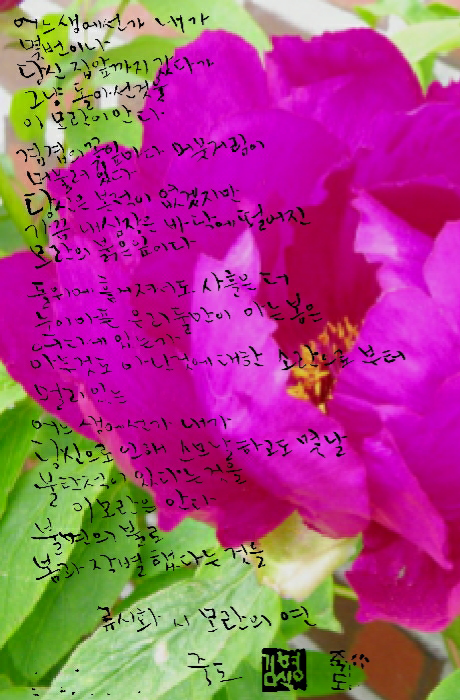 어느 생에선가 내가
몇번이나
당신 집앞까지 갔다가
그냥 돌아선것을
이 모란이 안다
겹겹의 꽃잎마다 머뭇거림이
머물러 있다
당신은 본적이 없겠지만
가끔 내 심장은 바닥에 떨어진
모란의 붉은잎이다
돌위에 흩어져서도 사흘은 더
눈이 아픈 우리둘만이 아는 봄은
어디에 있는가
아무것도 아닌것에 대한 소란으로 부터
멀리 있는
어느 생에선가 내가
당신으로 인해 소멸하고도 몇날
불탄적이 있다는 것을
이 모란은 안다
불면의 불로
봄과 작별했다는 것을
류시화 시 모란의 연
죽도